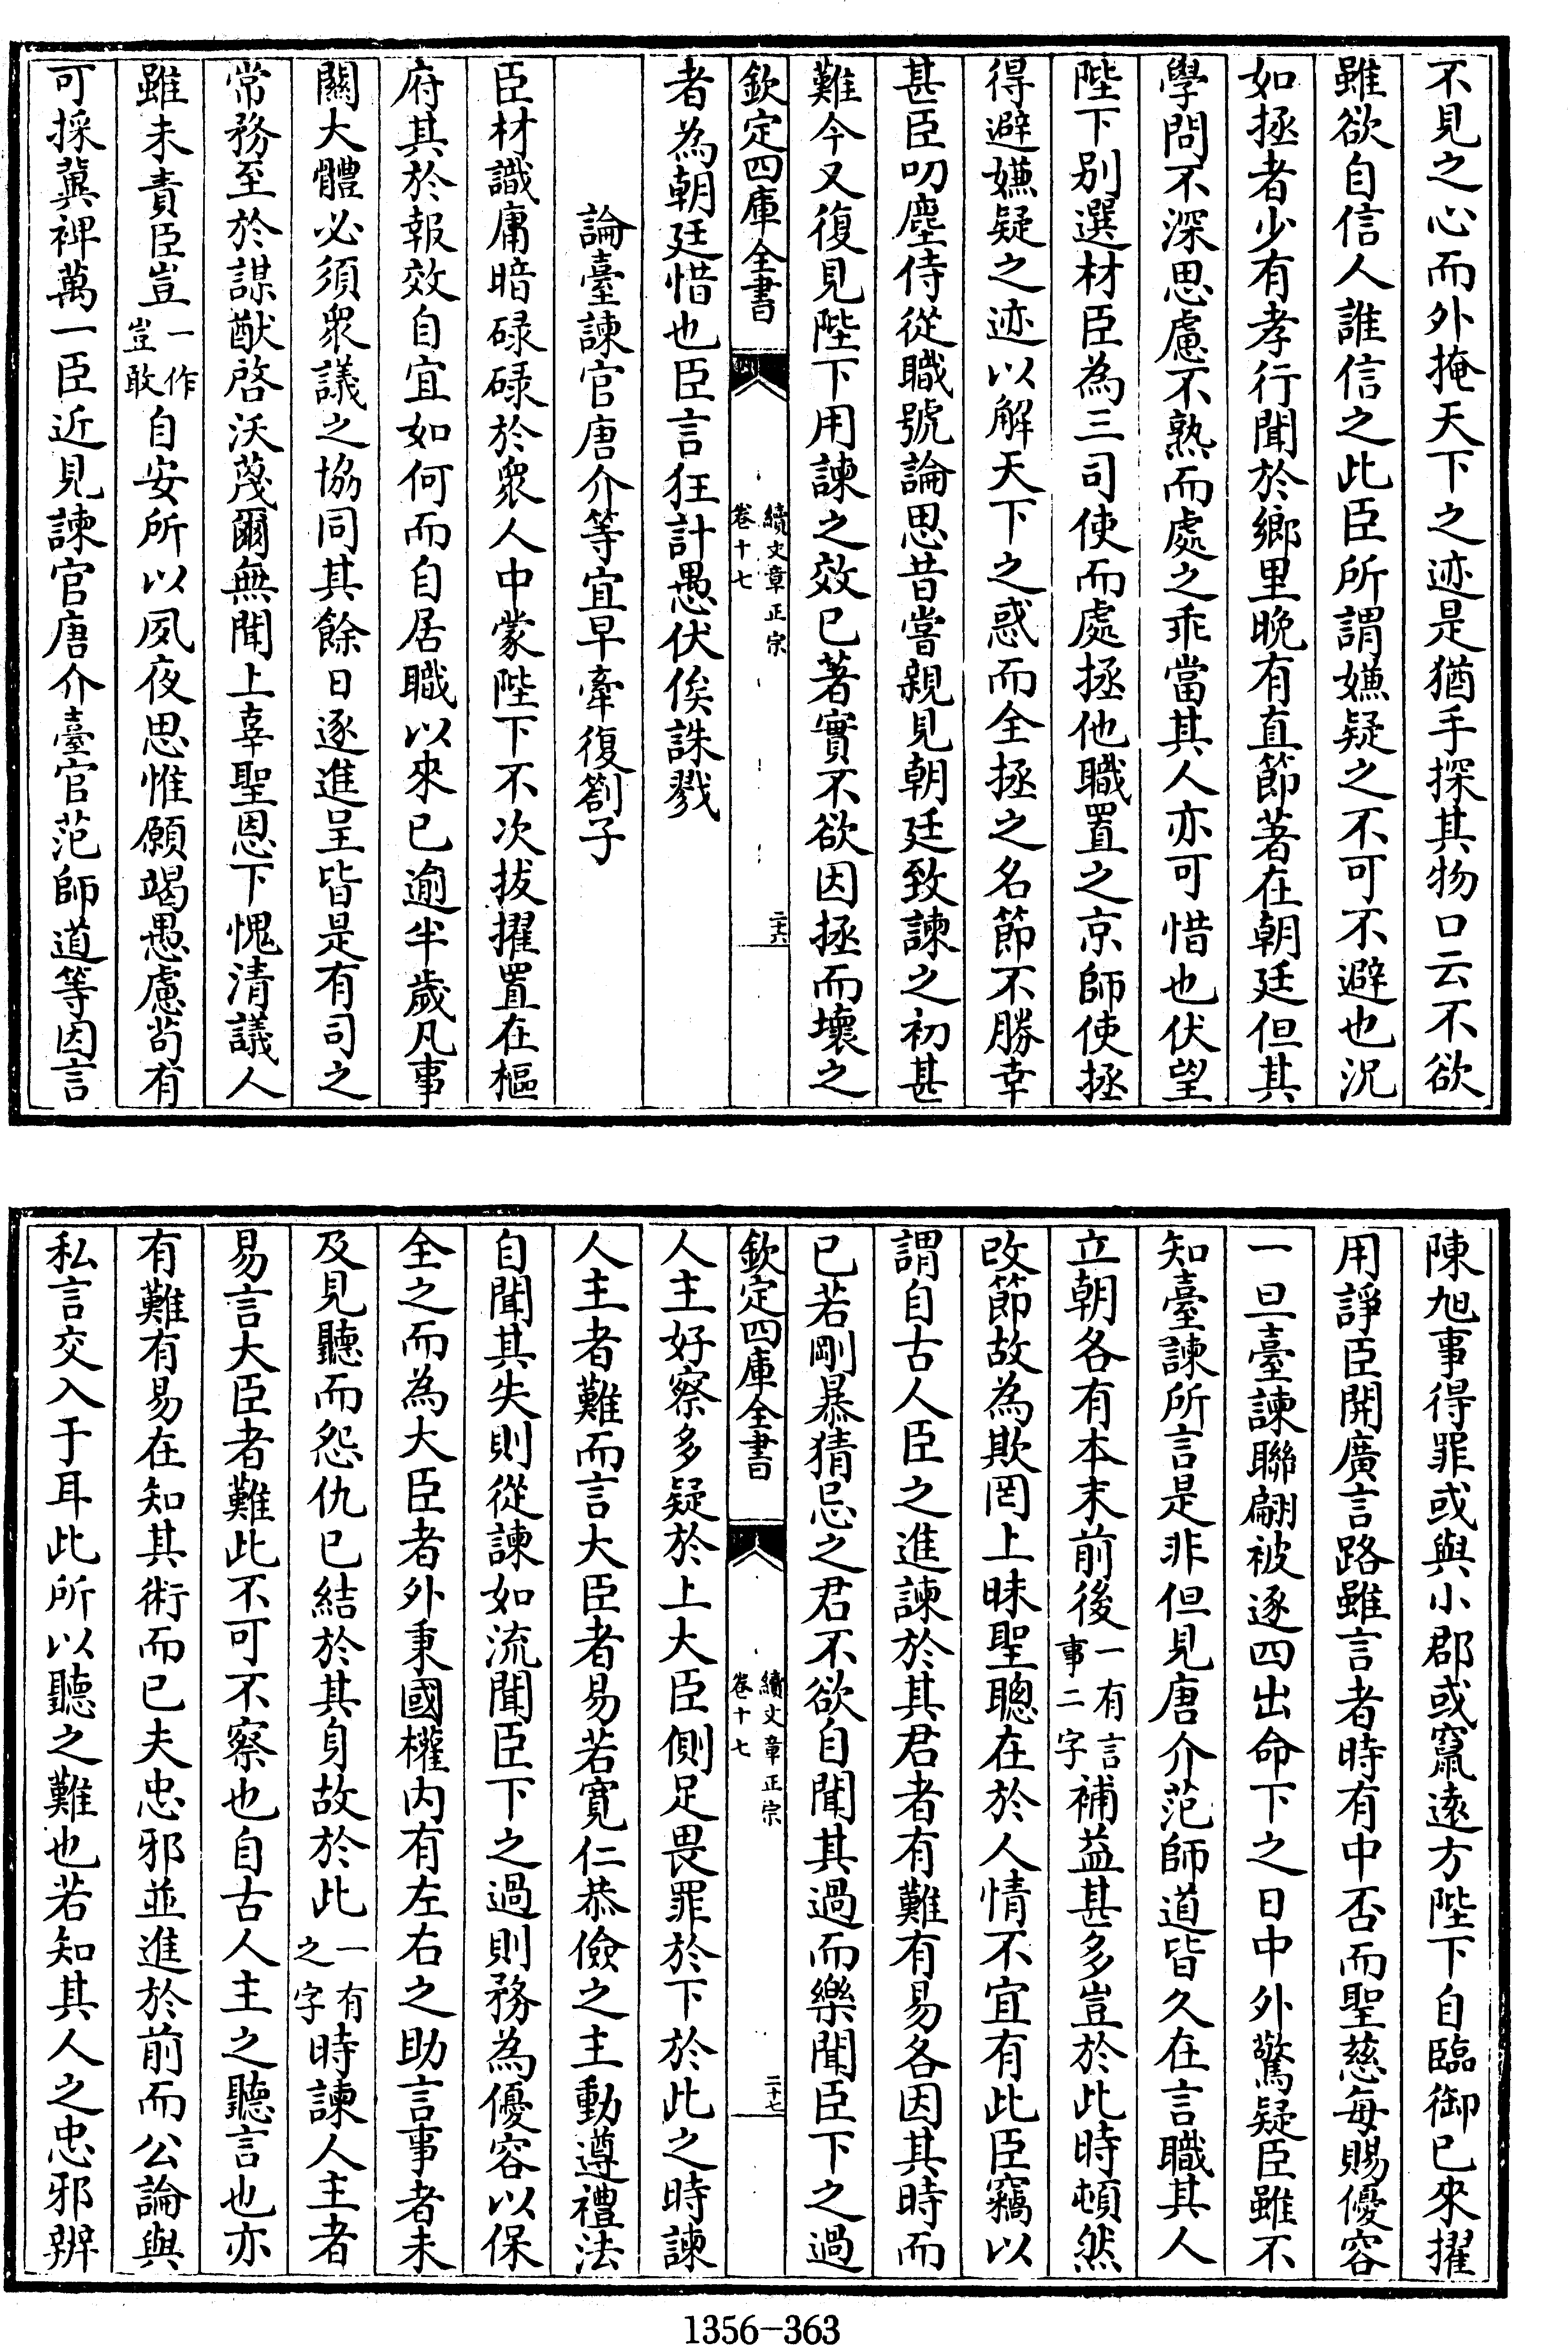 不見之心而外掩天下之迹是猶手探其物口云不欲
雖欲自信人誰信之此臣所謂嫌疑之不可不避也況
如拯者少有孝行聞於鄉里晚有直節著在朝廷但其
學問不深思慮不熟而處之乖當其人亦可惜也伏望
陛下別選材臣為三司使而處拯他職置之京師使拯
得避嫌疑之迹以解天下之惑而全拯之名節不勝幸
甚臣叨塵侍從職號論思昔嘗親見朝廷致諫之初甚
難今又復見陛下用諫之效已著實不欲因拯而壞之
欽定四庫全書
續文章正宗
卷十七
二十六
者為朝廷惜也臣言狂計愚伏俟誅戮
論臺諫官唐介等宜早牽復劄子
臣材識庸暗碌碌於衆人中蒙陛下不次拔擢置在樞
府其於報效自宜如何而自居職以來已逾半歲凡事
關大體必須衆議之協同其餘日逐進呈皆是有司之
常務至於謀猷啓沃蔑爾無聞上辜聖恩下愧清議人
雖未責臣豈一作豈敢自安所以夙夜思惟願竭愚慮苟有
可採冀裨萬一臣近見諫官唐介臺官范師道等因言
陳旭事得罪或與小郡或竄遠方陛下自臨御已來擢
用諍臣開廣言路雖言者時有中否而聖慈每賜優容
一旦臺諫聯翩被逐四出命下之日中外驚疑臣雖不
知臺諫所言是非但見唐介范師道皆久在言職其人
立朝各有本末前後一有言事二字補益甚多豈於此時頓然
改節故為欺罔上昧聖聰在於人情不宜有此臣竊以
謂自古人臣之進諫於其君者有難有易各因其時而
已若剛暴猜忌之君不欲自聞其過而樂聞臣下之過
欽定四庫全書
續文章正宗
卷十七
二十七
人主好察多疑於上大臣側足畏罪於下於此之時諫
人主者難而言大臣者易若寬仁恭儉之主動遵禮法
自聞其失則從諫如流聞臣下之過則務為優容以保
全之而為大臣者外秉國權内有左右之助言事者未
及見聽而怨仇已結於其身故於此一有之字時諫人主者
易言大臣者難此不可不察也自古人主之聽言也亦
有難有易在知其術而已夫忠邪並進於前而公論與
私言交入于耳此所以聽之難也若知其人之忠邪辨
1356-363